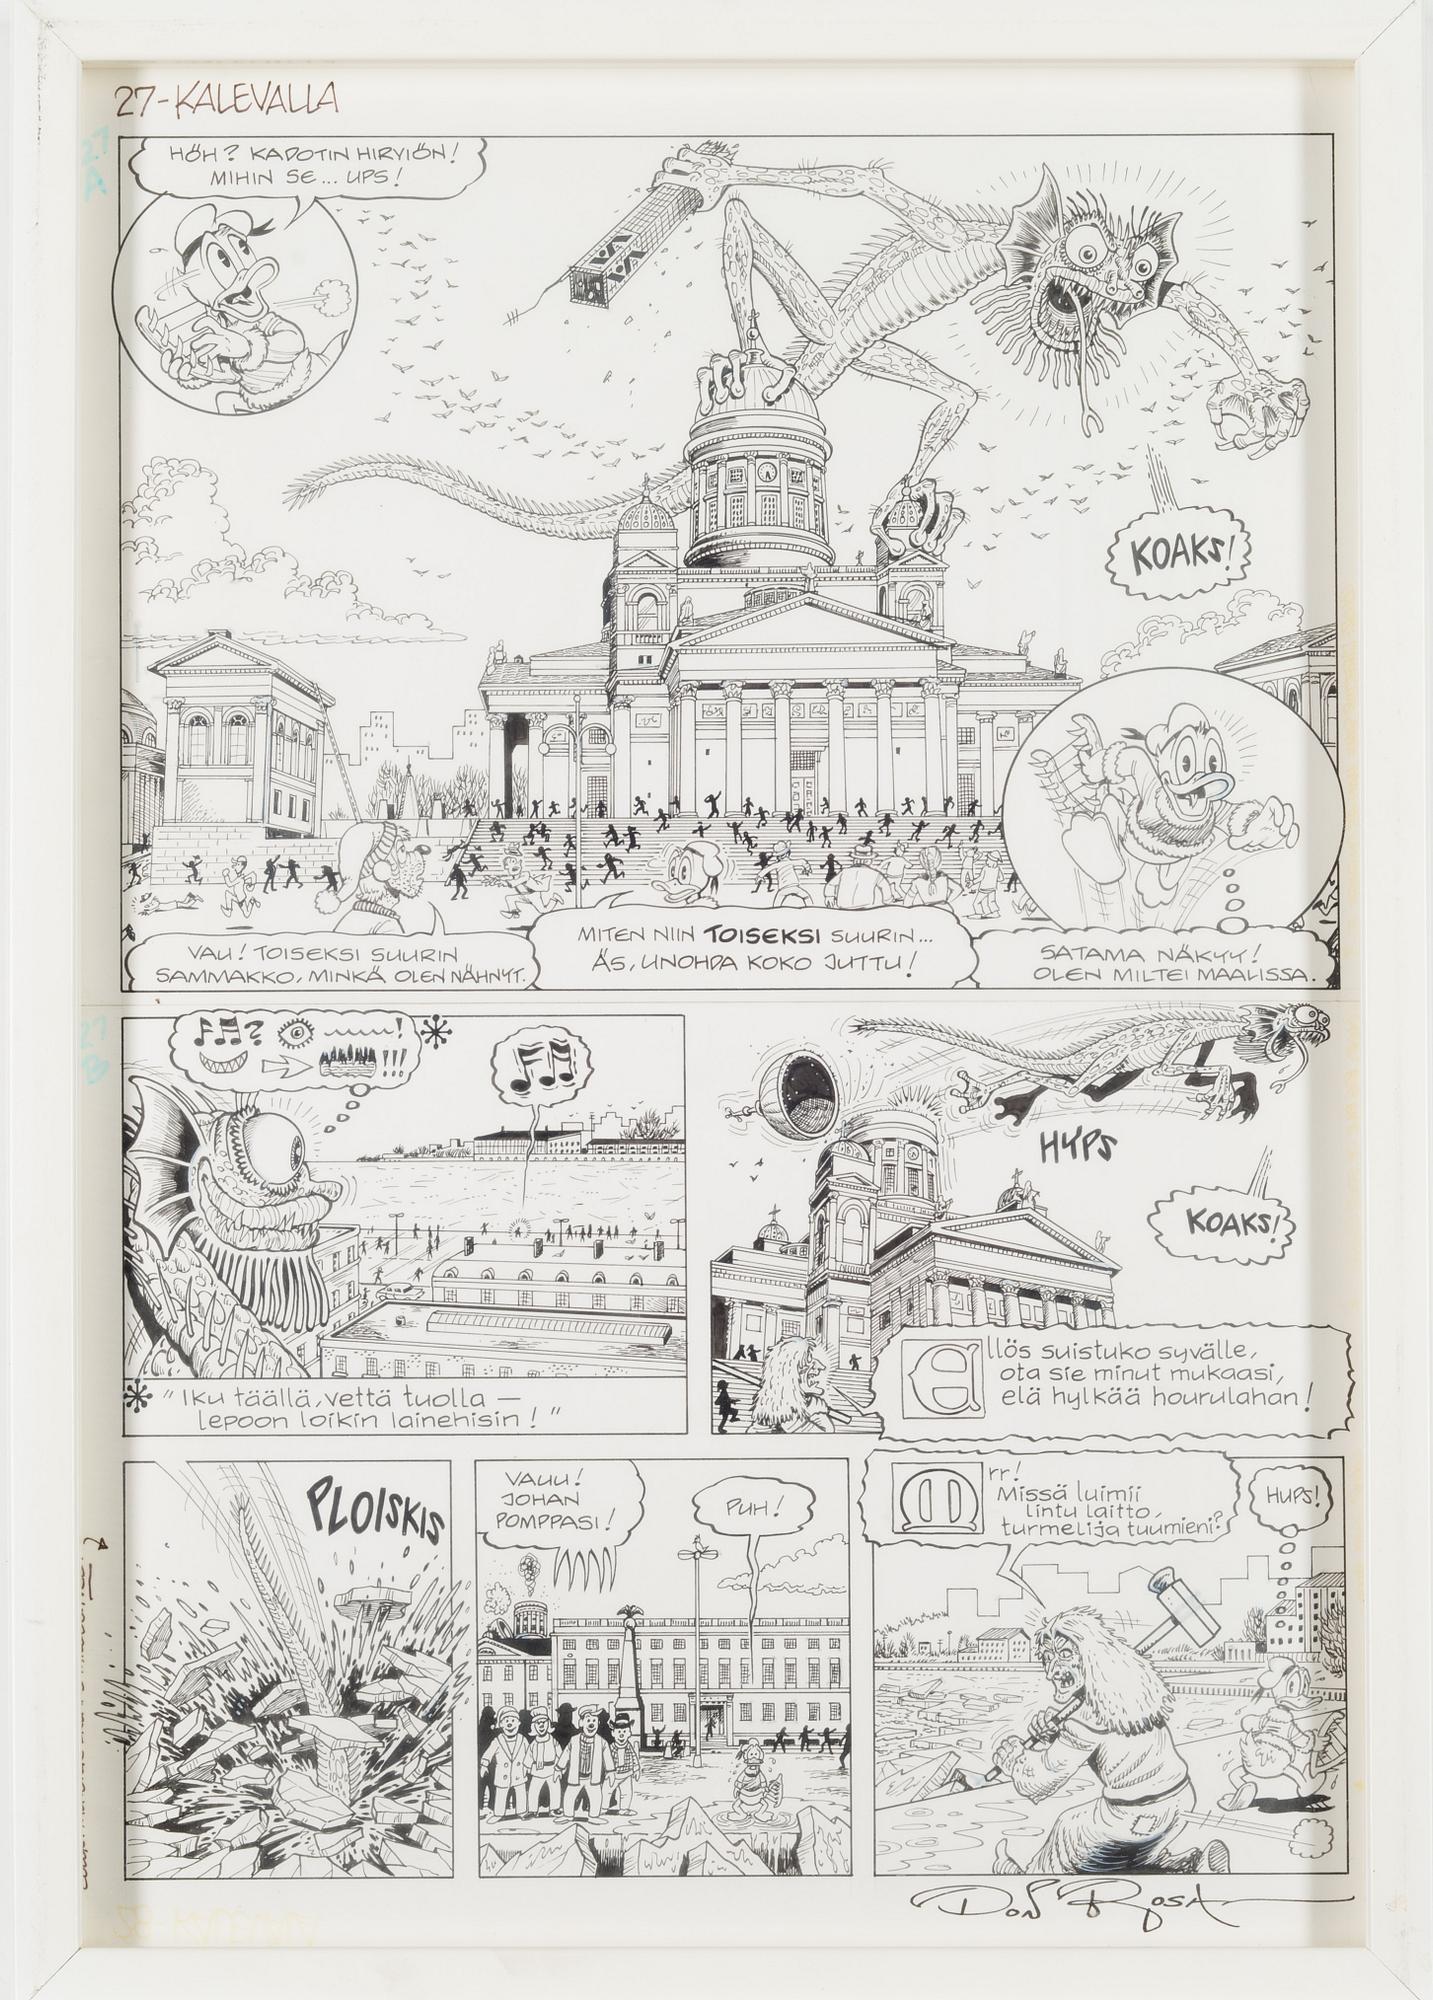 27-KALEVALLA
27
A
HÖH? KADOTIN HIRVIÖN!
MIHIN SE... UPS!
KOAKS!
VAU! TOISEKSI SUURIN
SAMMAKKO, MINKÄ OLEN NÄHNYT.
MITEN NIIN TOISEKSI SUURIN...
ÄS, UNOHDA KOKO JUTTU!
SATAMA NÄKYY!
OLEN MILTEI MAALISSA.
27
B
"Iku täällä, vettä tuolla —
lepoon loikin lainehisin!"
HYPS
KOAKS!
Ellös suistuko syvälle,
ota sie minut mukaasi,
elä hylkää hourulahan!
PLOISKIS
VAUU!
JOHAN
POMPPASI!
PUH!
Mrr!
Missä luimii
lintu laitto,
turmelija tuumieni?
HUPS!
DON ROSA